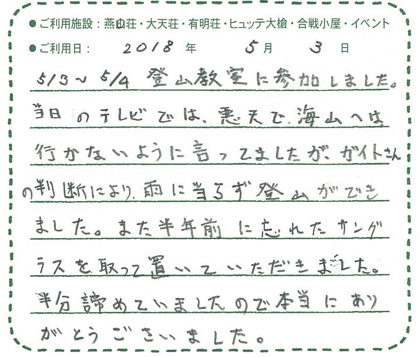 ●ご利用施設：燕山荘・大天荘・有明荘・ヒュッテ大槍・合戦小屋・イベント
●ご利用日： 2018 年 5 月 3 日
5/3～5/4 登山教室に参加しました。
当日のテレビでは、悪天で海山へは
行かないように言ってましたが、ガイトさん
の判断により、雨に当らず登山ができ
ました。また半年前に忘れたサング
ラスを取って置いていただきました。
半分諦めていましたので本当にあり
がとうございました。